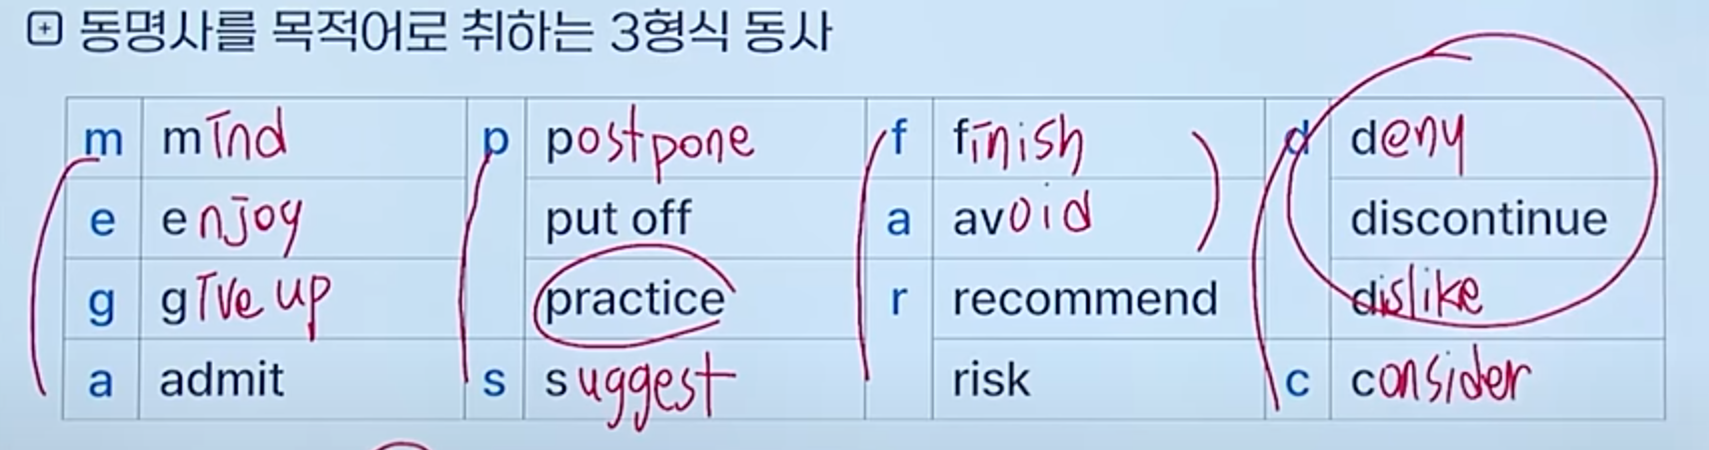 + 동명사를 목적어로 취하는 3형식 동사
m mind p postpone f finish d deny
e enjoy put off a avoid discontinue
g give up practice r recommend dislike
a admit s suggest risk c consider